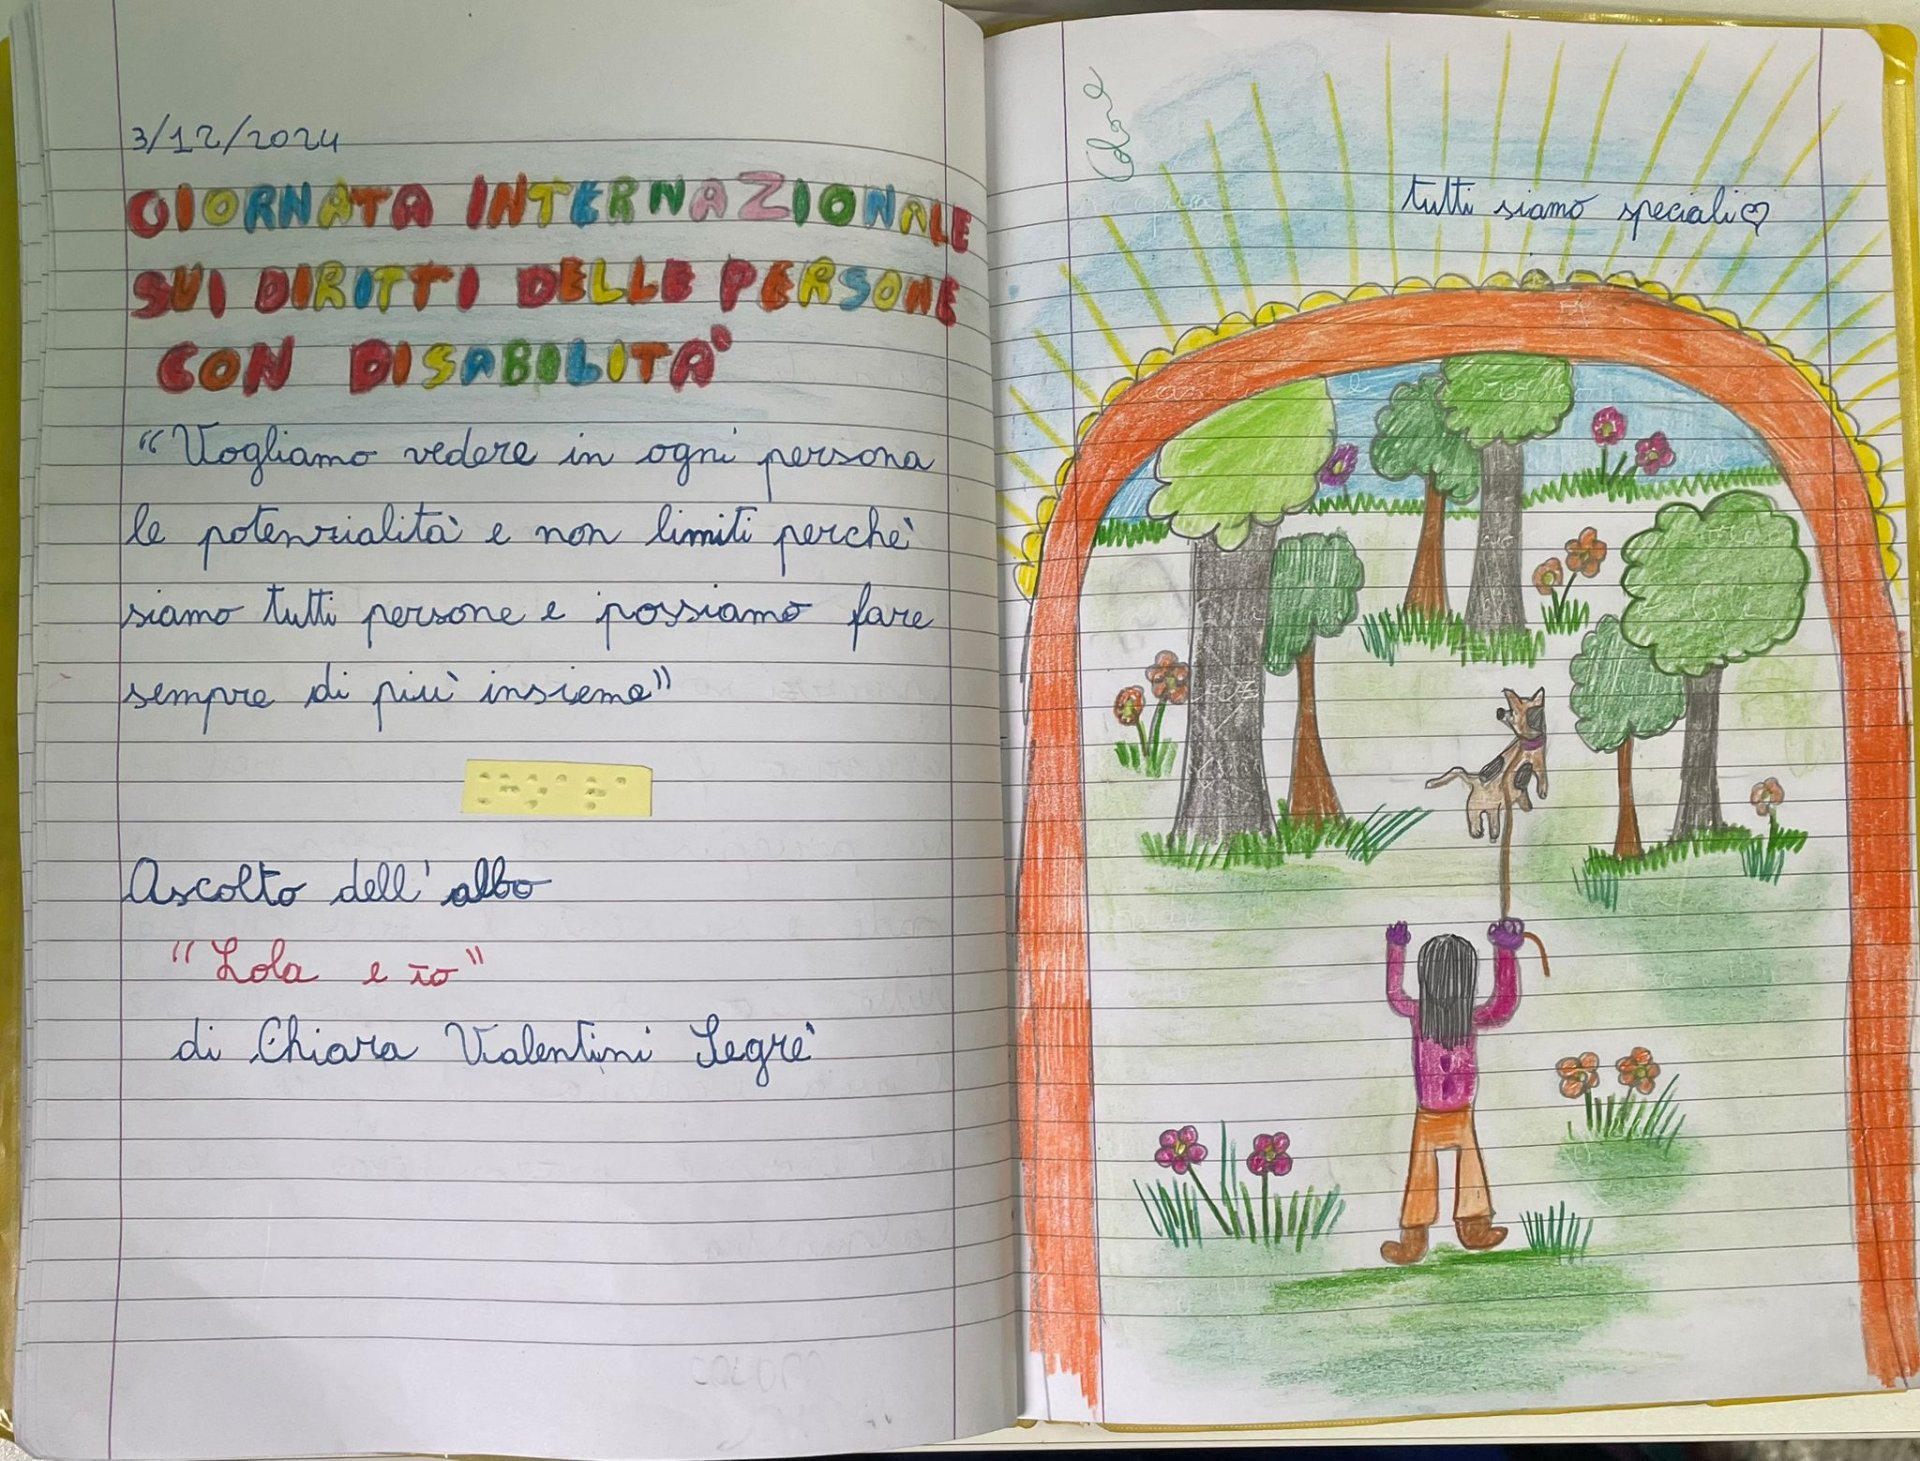 3/12/2024
GIORNATA INTERNAZIONALE
SUI DIRITTI DELLE PERSONE
CON DISABILITA'
"Vogliamo vedere in ogni persona
le potenzialità e non limiti perchè
siamo tutti persone e possiamo fare
sempre di più insieme"
Ascolto dell'albo
"Lola e io"
di Chiara Valentini Segrè
tutti siamo speciali♡